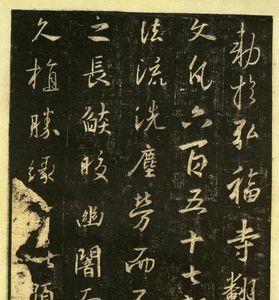 勅於弘福寺翻
文凡六百五十七
法流洗塵勞而不
之長燄皎幽闇而
久植勝緣以顯